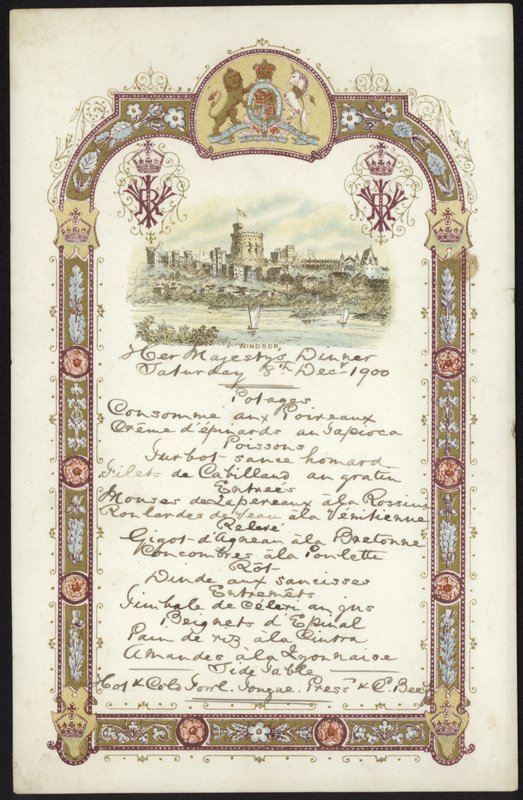 WINDSOR
Her Majestys Dinner
Saturday 8th Decr 1900
Potages
Consomme aux Poireaux
Crême d'épinards au Tapioca
Poissons
Turbot sauce homard
Filets de Cabillaud au gratin
Entrées
Mouses de Lapereaux à la Rossini
Roulardes de Veau à la Vénitienne
Relevé
Gigot d'Agneau à la Bretonne
Concombres à la Poulette
Rôt
Dinde aux saucisses
Entremêts
Timbale de Céleri au jus
Beignets d'Epinal
Pain de riz à la Cintra
Amandes à la Lyonnaise
Side Table
Hot & Cold Fowl. Tongue. Pressd & C. Beef